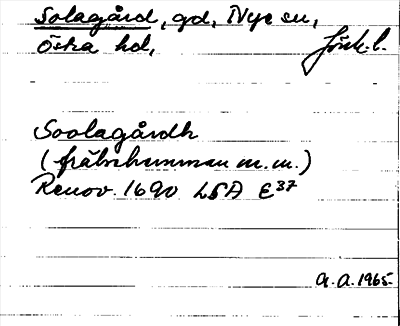 Solagård, gd, Nye sn,
Östra hd, Jönk. l.
Soolagårdh
(frälsehemman m. m.)
Renov. 1690 LSA E37
G. A. 1965